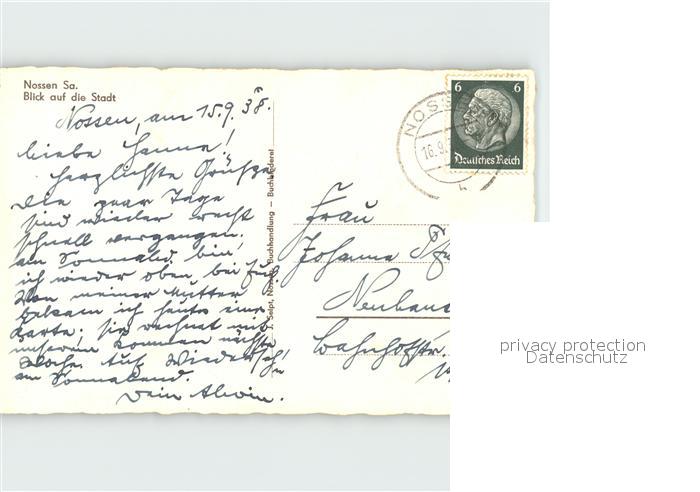 Nossen Sa.
Blick auf die Stadt
Nossen, am 15.9.38.
Liebe Hanne!
Herzlichste Grüße
Die paar Tage
sind wieder recht
schnell vergangen.
am Sonnabd. bin
ich wieder oben bei Euch.
Von meiner Mutter
bekam ich heute eine
Karte; sie rechnet mit
unserem kommen nächste
Woche. Auf Wiedersehn!
am Sonnabend.
Dein Alwin.
J. Seipt, Nossen, Buchhandlung — Buchbinderei
NOSS
16.9.
b
6 6
Deutsches Reich
Frau
Johanna
Neuhaus
Bahnhofstr.
privacy protection
Datenschutz